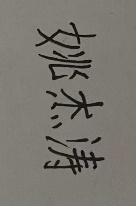 姚杰涛